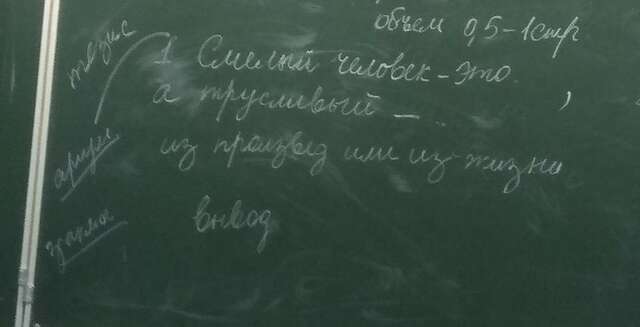 объем 0,5-1стр
тезис
1 Смелый человек - это
,
а трусливый —
аргум
из произвед или из жизни
вывод